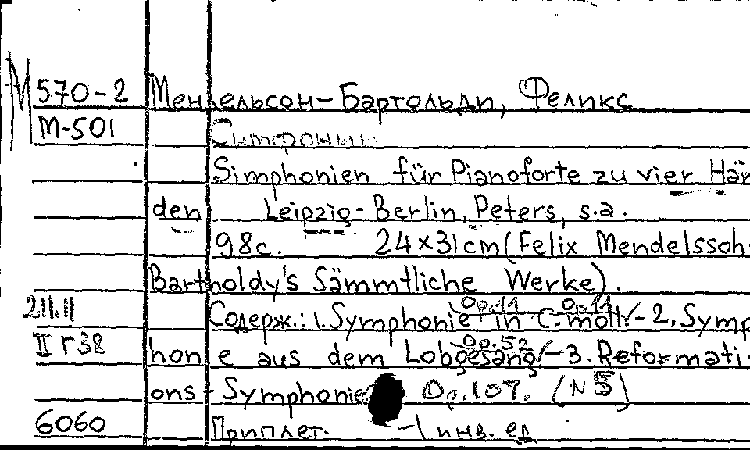 М 570-2 Мендельсон-Бартольди, Феликс
М-501 Симфонии.
Simphonien für Pianoforte zu vier Hän
den Leipzig-Berlin, Peters, s.a.
98с. 24×31cm (Felix Mendelssoh-
Bartholdy's Sämmtliche Werke).
Op.11
Содерж.: 1. Symphonie in C-moll/-2. Symp
II г 38 Op.52
honie aus dem Lobgesang/-3. Reformati-
ons-Symphonie Op.107. (N 5)
6060 Приплет. -1 инв. ед